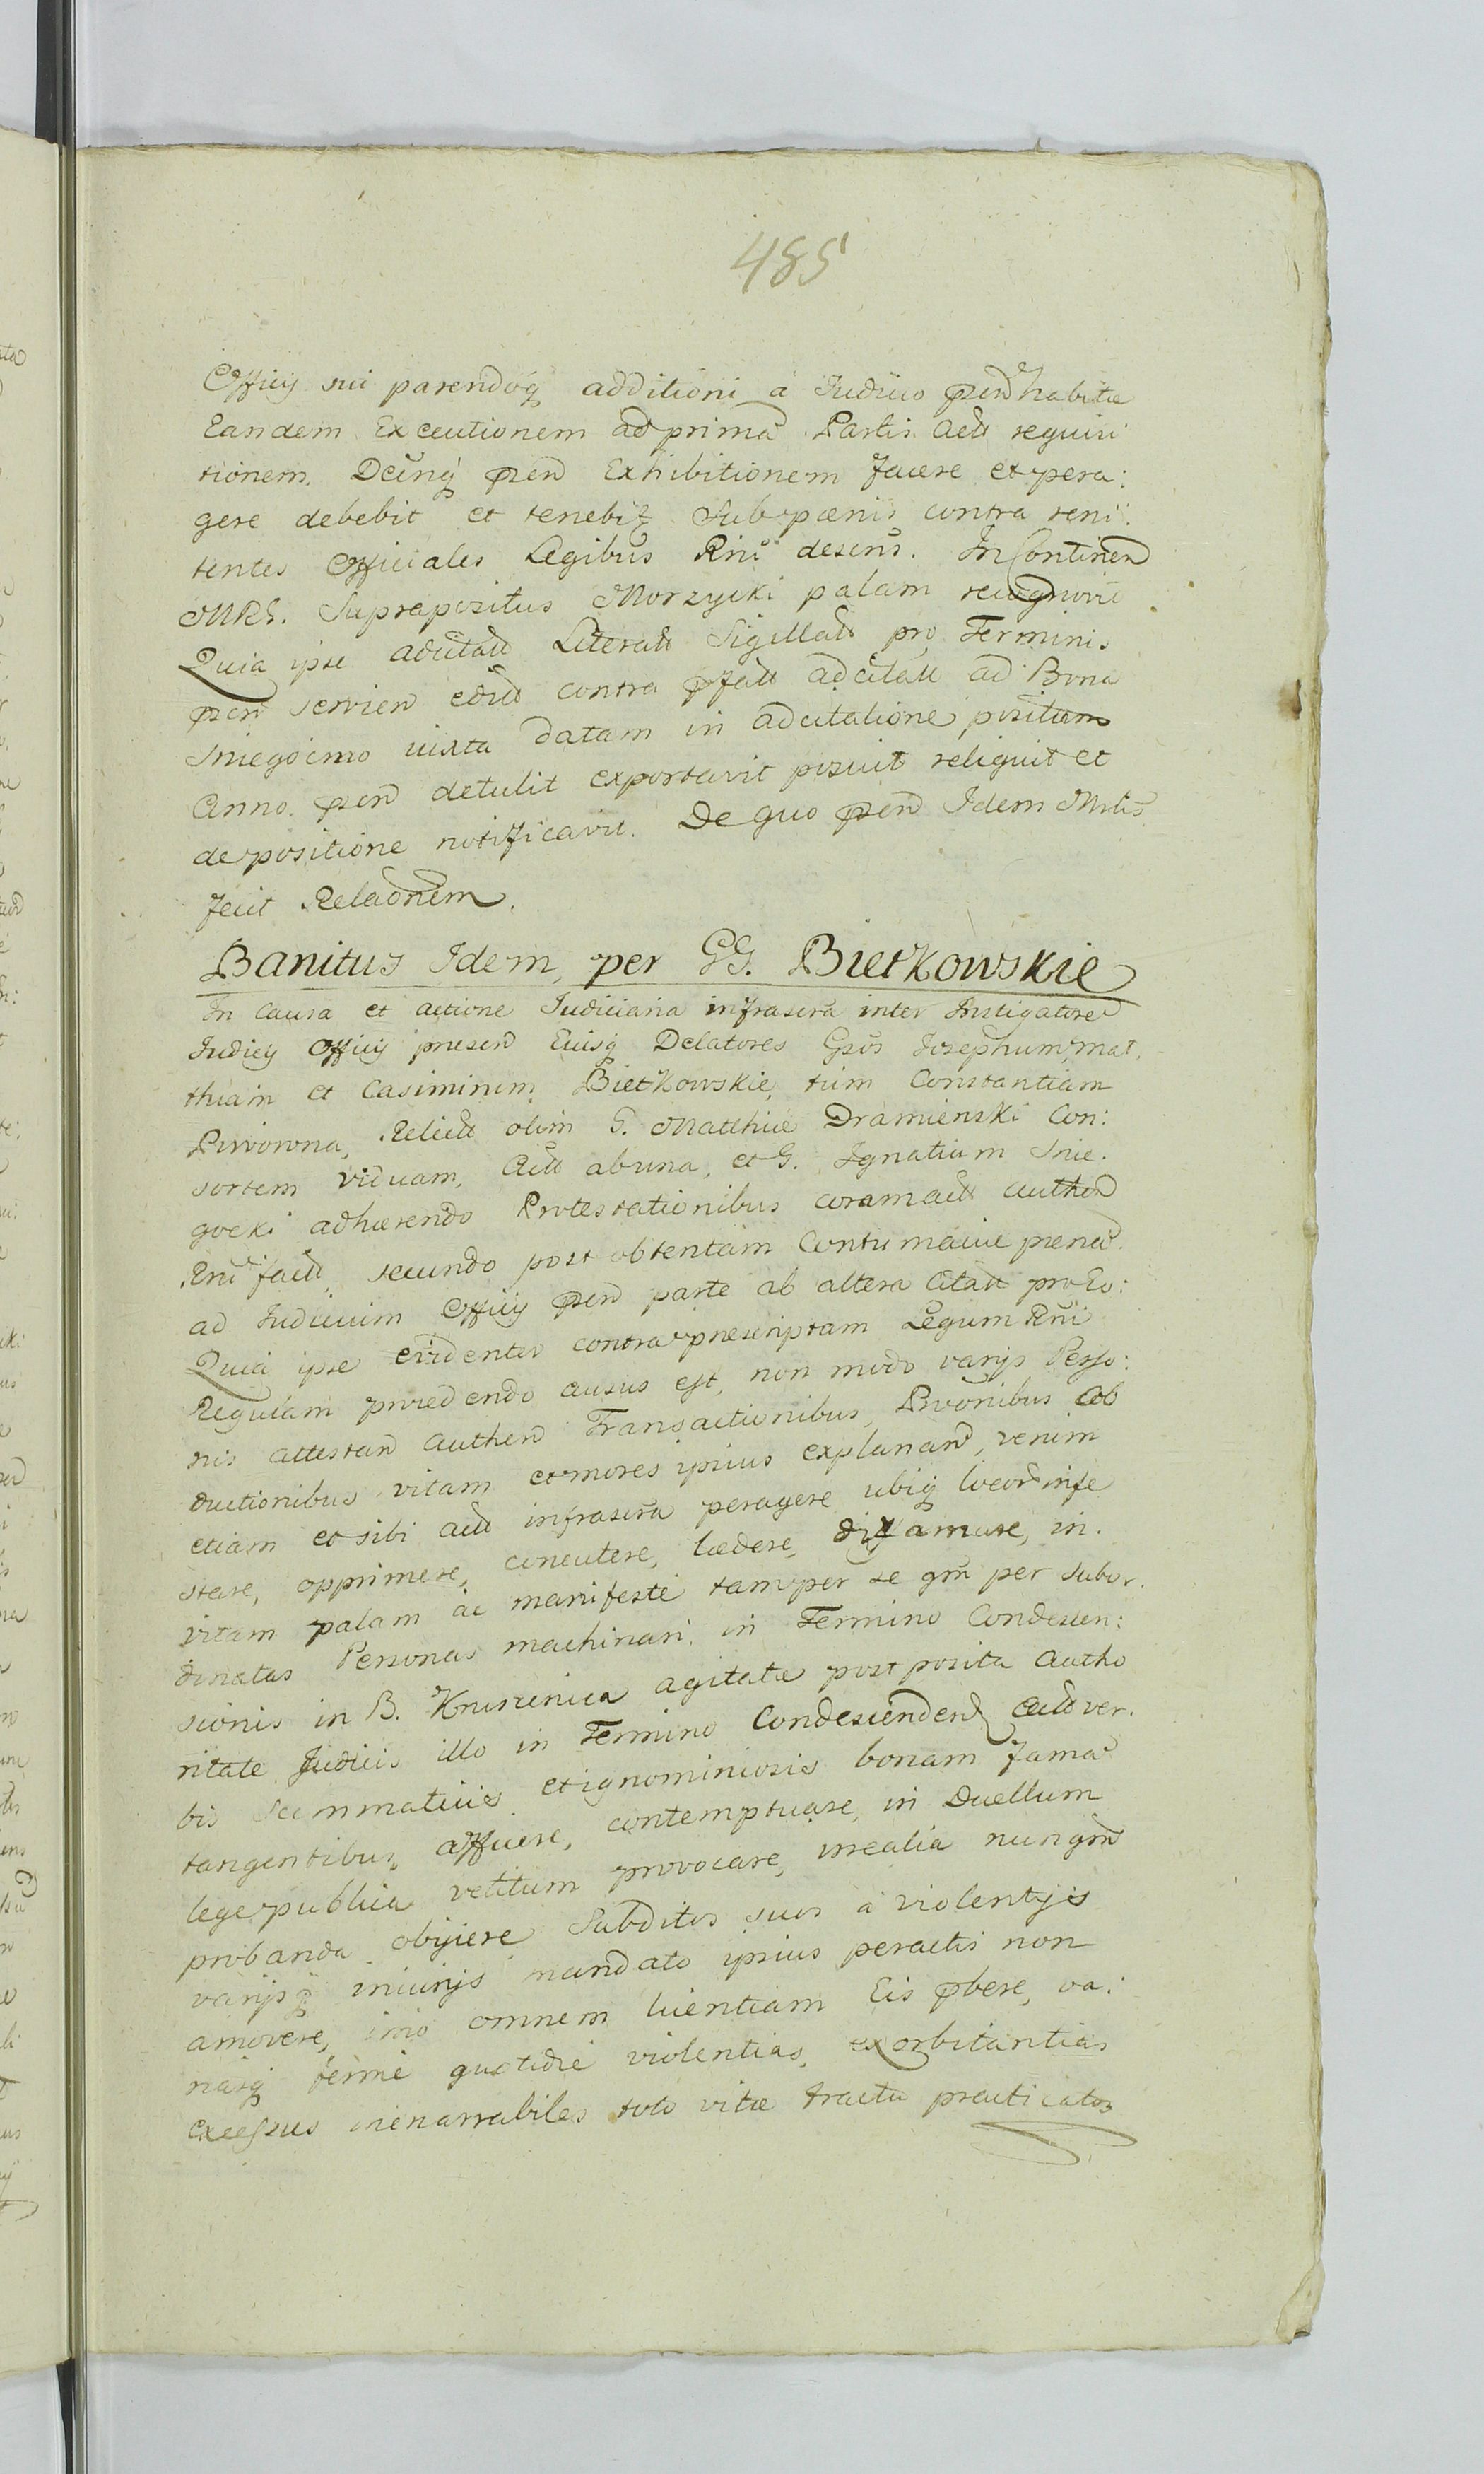 485
Officij sui parendoq̃ additioni â Judicio pñ habitæ
Eandem Executionem ad primã Partis Act̃ requisi
tionem, Dc̃iinq̃ pñ Exhibitionem facere et pera:
gere debebit et tenebit̃ Sub pænis contra reni:
tentes Officiales Legibus Rni descris. In Continen̄
MRG. Suprapositus Morzycki palam recognovit
Quia ipse adcitat̃ Literat̃ Sigillat̃ pro Terminis
pñ servien̄ contra adcitat̃ ad Bona
Sniegocino iuxta datam in adcitatione positam
Anno pñ detulit exportavit posuit reliquit et
depositione notificavit. De quo pñ Idem Mnlis
fecit Relac̃onem.
Banitus Idem, per GG. Bietkowskie
In Causa et actione Judiciaria infrascrã inter Instigatorẽ
Judicij Officij presen̄ Eiusq̃ Delatores Gsos Josephum, Mat,
thiam et Casimirum Bietkowskie, tum Constantiam
Pivowna, Relict̃ olim G. Matthiæ Dramienski Con:
sortem viduam, Act̃ ab una, et G. Ignatium Snie:
gocki adhærendo Protestationibus coram act̃ authen̄
Rni fact̃, secundo post obtentam Contumaciæ pænã
ad Judicium Officij pñ parte ab altera Citat̃ pro Eo:
Quia ipse evidenter contra præscriptam Legum Rni
Regulam procedendo ausus est, non modo varijs Perso:
nis attestan̄ authen̄ Transactionibus, Pro̅nibus Ob
ductionibus vitam et mores ipsius explanan̄, verum
etiam et sibi act̃ infrascrã peragere ubiq̃ locor̃ infe
stare, opprimere, concutere, lædere, diffamare, in:
vitam palam ac manifestè tam per se qm̃ per subor:
dinatas Personas machinari, in Termino Condescen:
sionis in B. Kruszenica agitatæ post posita Autho
ritate Judicis illo in Termino Condescenden̄ act̃ ver:
bis Scommaticis et ignominiosis bonam famã
tangentibus afficere, contemptuare, in Duellum
lege publica vetitum provocare, irrealia nunqm̃
probanda obijcere Subditos suos â violentijs
varijsq̃ iniurijs mandato ipsius peractis non
amovere, imo omnem licentiam Eis p̃bere, va:
riasq̃ fermè quotidiè violentias, exorbitantias
excessus inenarrabiles toto vitæ tractu practicatos